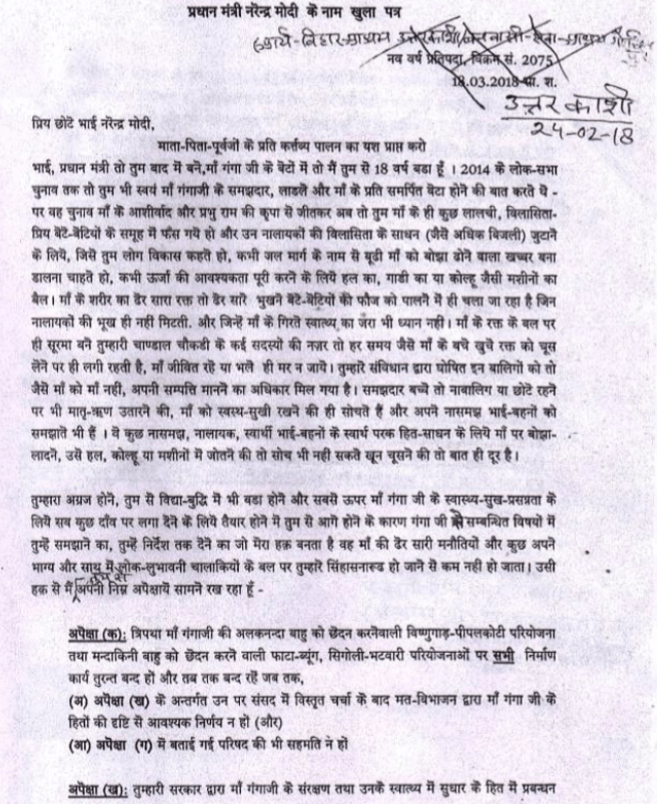 प्रधान मंत्री नरेन्द्र मोदी के नाम खुला पत्र
नव वर्ष प्रतिपदा, विक्रम सं. 2075
18.03.2018
उत्तरकाशी
24-02-18
प्रिय छोटे भाई नरेन्द्र मोदी,
माता-पिता-पूर्वजों के प्रति कर्त्तव्य पालन का यश प्राप्त करो
भाई, प्रधान मंत्री तो तुम बाद में बने,माँ गंगा जी के बेटों में तो मैं तुम से 18 वर्ष बडा हूँ । 2014 के लोक-सभा
चुनाव तक तो तुम भी स्वयं माँ गंगाजी के समझदार, लाडले और माँ के प्रति समर्पित बेटा होने की बात करते थे -
पर वह चुनाव माँ के आशीर्वाद और प्रभु राम की कृपा से जीतकर अब तो तुम माँ के ही कुछ लालची, विलासिता-
प्रिय बेटे-बेटियों के समूह में फँस गये हो और उन नालायकों की विलासिता के साधन (जैसे अधिक बिजली) जुटाने
के लिये, जिसे तुम लोग विकास कहते हो, कभी जल मार्ग के नाम से बूढी माँ को बोझा ढोने वाला खच्चर बना
डालना चाहते हो, कभी ऊर्जा की आवश्यकता पूरी करने के लिये हल का, गाडी का या कोल्हू जैसी मशीनों का
बैल। माँ के शरीर का ढेर सारा रक्त तो ढेर सारे भुखने बेटे-बेटियों की फौज को पालने में ही चला जा रहा है जिन
नालायकों की भूख ही नही मिटती. और जिन्हें माँ के गिरते स्वास्थ्य का जरा भी ध्यान नही। माँ के रक्त के बल पर
ही सूरमा बने तुम्हारी चाण्डाल चौकडी के कई सदस्यों की नज़र तो हर समय जैसे माँ के बचे खुचे रक्त को चूस
लेने पर ही लगी रहती है, माँ जीवित रहे या भले ही मर न जाये। तुम्हारे संविधान द्वारा घोषित इन बालिगों को तो
जैसे माँ को माँ नही, अपनी सम्पत्ति मानने का अधिकार मिल गया है। समझदार बच्चे तो नाबालिग या छोटे रहने
पर भी मातृ-ऋण उतारने की, माँ को स्वस्थ-सुखी रखने की ही सोचते हैं और अपने नासमझ भाई-बहनों को
समझाते भी हैं । वे कुछ नासमझ, नालायक, स्वार्थी भाई-बहनों के स्वार्थ परक हित-साधन के लिये माँ पर बोझा-
लादने, उसे हल, कोल्हू या मशीनों में जोतने की तो सोच भी नही सकते खून चूसने की तो बात ही दूर है।
तुम्हारा अग्रज होने, तुम से विद्या-बुद्धि में भी बडा होने और सबसे ऊपर माँ गंगा जी के स्वास्थ्य-सुख-प्रसन्नता के
लिये सब कुछ दाँव पर लगा देने के लिये तैयार होने में तुम से आगे होने के कारण गंगा जी से सम्बन्धित विषयों में
तुम्हें समझाने का, तुम्हें निर्देश तक देने का जो मेरा हक़ बनता है वह माँ की ढेर सारी मनौतियों और कुछ अपने
भाग्य और साथ में लोक-लुभावनी चालाकियों के बल पर तुम्हारे सिंहासनारूढ हो जाने से कम नही हो जाता। उसी
हक़ से मैं तुमसे अपनी निम्न अपेक्षायें सामने रख रहा हूँ -
अपेक्षा (क): त्रिपथा माँ गंगाजी की अलकनन्दा बाहु को छेदन करनेवाली विष्णुगाड़-पीपलकोटी परियोजना
तथा मन्दाकिनी बाहु को छेदन करने वाली फाटा-ब्यूंग, सिंगोली-भटवारी परियोजनाओं पर सभी निर्माण
कार्य तुरन्त बन्द हों और तब तक बन्द रहें जब तक,
(अ) अपेक्षा (ख) के अन्तर्गत उन पर संसद में विस्तृत चर्चा के बाद मत-विभाजन द्वारा माँ गंगा जी के
हितों की दृष्टि से आवश्यक निर्णय न हों (और)
(आ) अपेक्षा (ग) में बताई गई परिषद की भी सहमति न हो
अपेक्षा (ख): तुम्हारी सरकार द्वारा माँ गंगाजी के संरक्षण तथा उनके स्वास्थ्य में सुधार के हित में प्रबन्धन